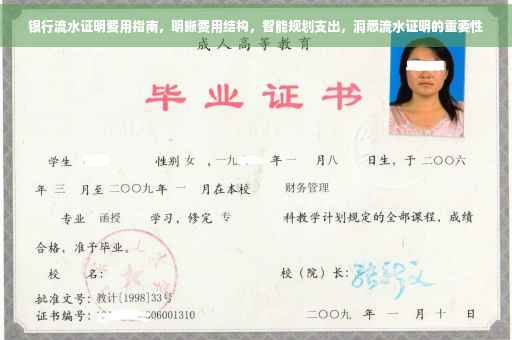 银行流水证明费用指南，明晰费用结构，智能规划支出，洞悉流水证明的重要性
成人高等教育
毕业证书
学生 性别 女 ，一九 年 一 月 八 日生，于 二〇〇六
年 三 月至 二〇〇九 年 一 月在本校 财务管理
专业 函授 学习，修完 专 科教学计划规定的全部课程，成绩
合格，准予毕业。
校 名： 校（院）长：
批准文号：教计[1998]33号
证书编号： 06001310 二〇〇九 年 一 月 十 日